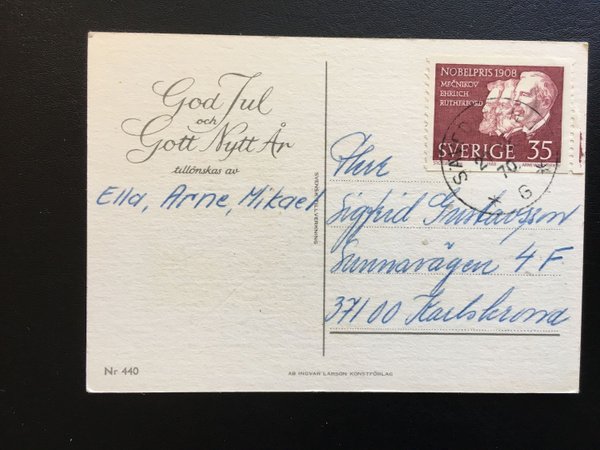 God Jul
och
Gott Nytt År
tillönskas av
Ella, Arne, Mikael
SVENSK TILLVERKNING
NOBELPRIS 1908
MEČNIKOV
EHRLICH
RUTHERFORD
SVERIGE 35
70
Herr
Sigfrid Gustavsson
Sunnavägen 4 F
37100 Karlskrona
Nr 440
AB INGVAR LARSON KONSTFÖRLAG